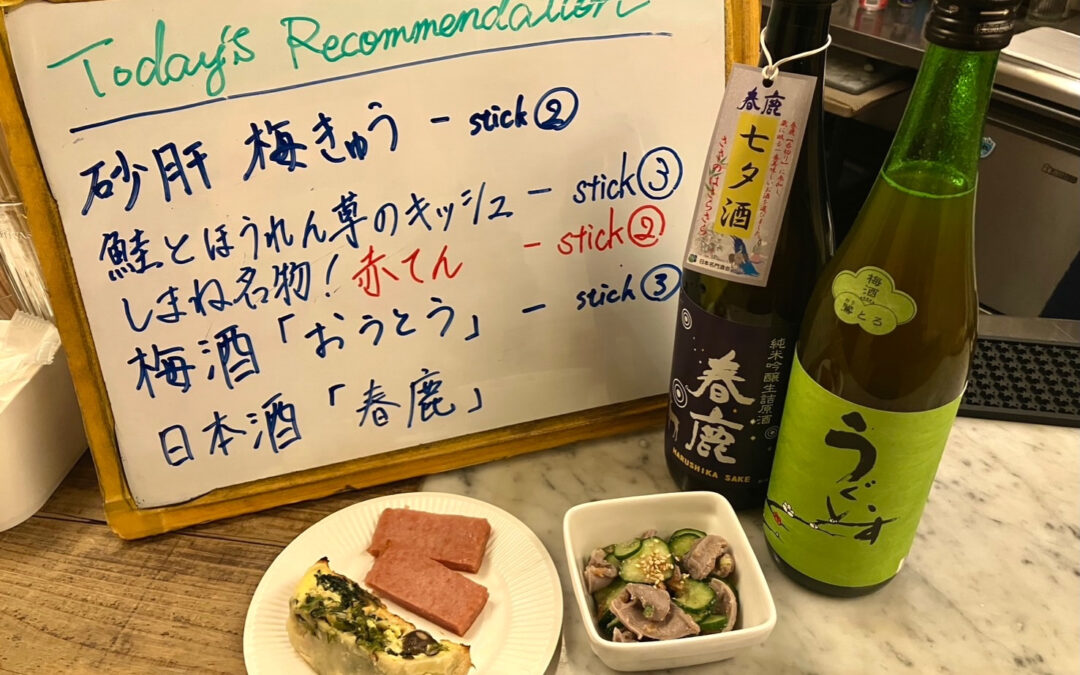 Today's Recommendation
砂肝 梅きゅう - stick②
鮭とほうれん草のキッシュ - stick③
しまね名物！赤てん - stick②
梅酒「おうとう」 - stick③
日本酒「春鹿」
春鹿
七夕酒
ささのはさらさら
日本名門酒会
純米吟醸生詰原酒
春鹿
HARUSHIKA SAKE
梅酒
鶯とろ
うぐいす